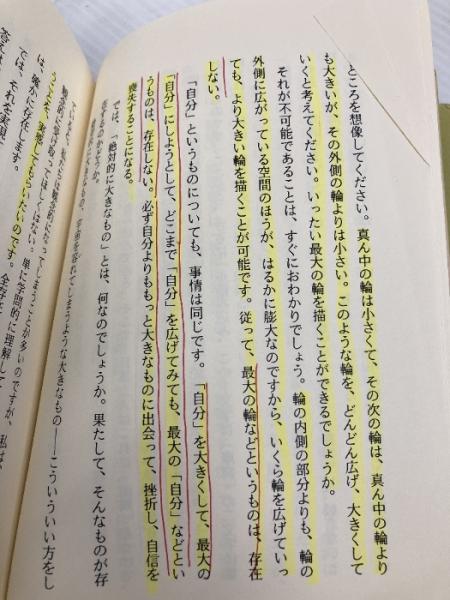 ところを想像してください。真ん中の輪は小さくて、その次の輪は、真ん中の輪より
も大きいが、その外側の輪よりは小さい。このような輪を、どんどん広げ、大きくして
いくと考えてください。いったい最大の輪を描くことができるでしょうか。
それが不可能であることは、すぐにおわかりでしょう。輪の内側の部分よりも、輪の
外側に広がっている空間のほうが、はるかに膨大なのですから、いくら輪を広げていっ
ても、より大きい輪を描くことが可能です。従って、最大の輪などというものは、存在
しない。
「自分」というものについても、事情は同じです。「自分」を大きくして、最大の
「自分」にしようとして、どこまで「自分」を広げてみても、最大の「自分」などとい
うものは、存在しない。必ず自分よりももっと大きなものに出会って、挫折し、自信を
喪失することになる。
では、「絶対的に大きなもの」とは、何なのでしょうか。果たして、そんなものが存
在するのかどうか。
こういういい方をし
ていると、私たちは観念的になってしまうことが多いのですが、私は、
観念的に受け取ってほしくはない。単に学問的に理解して
実感してもらいたいのです。
は、確かに存在します。
では、それを実現